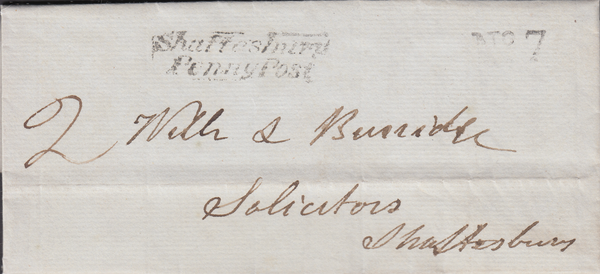 Shaftesbury
Penny Post
No 7
2 Wills & Burridge
Solicitors
Shaftesbury